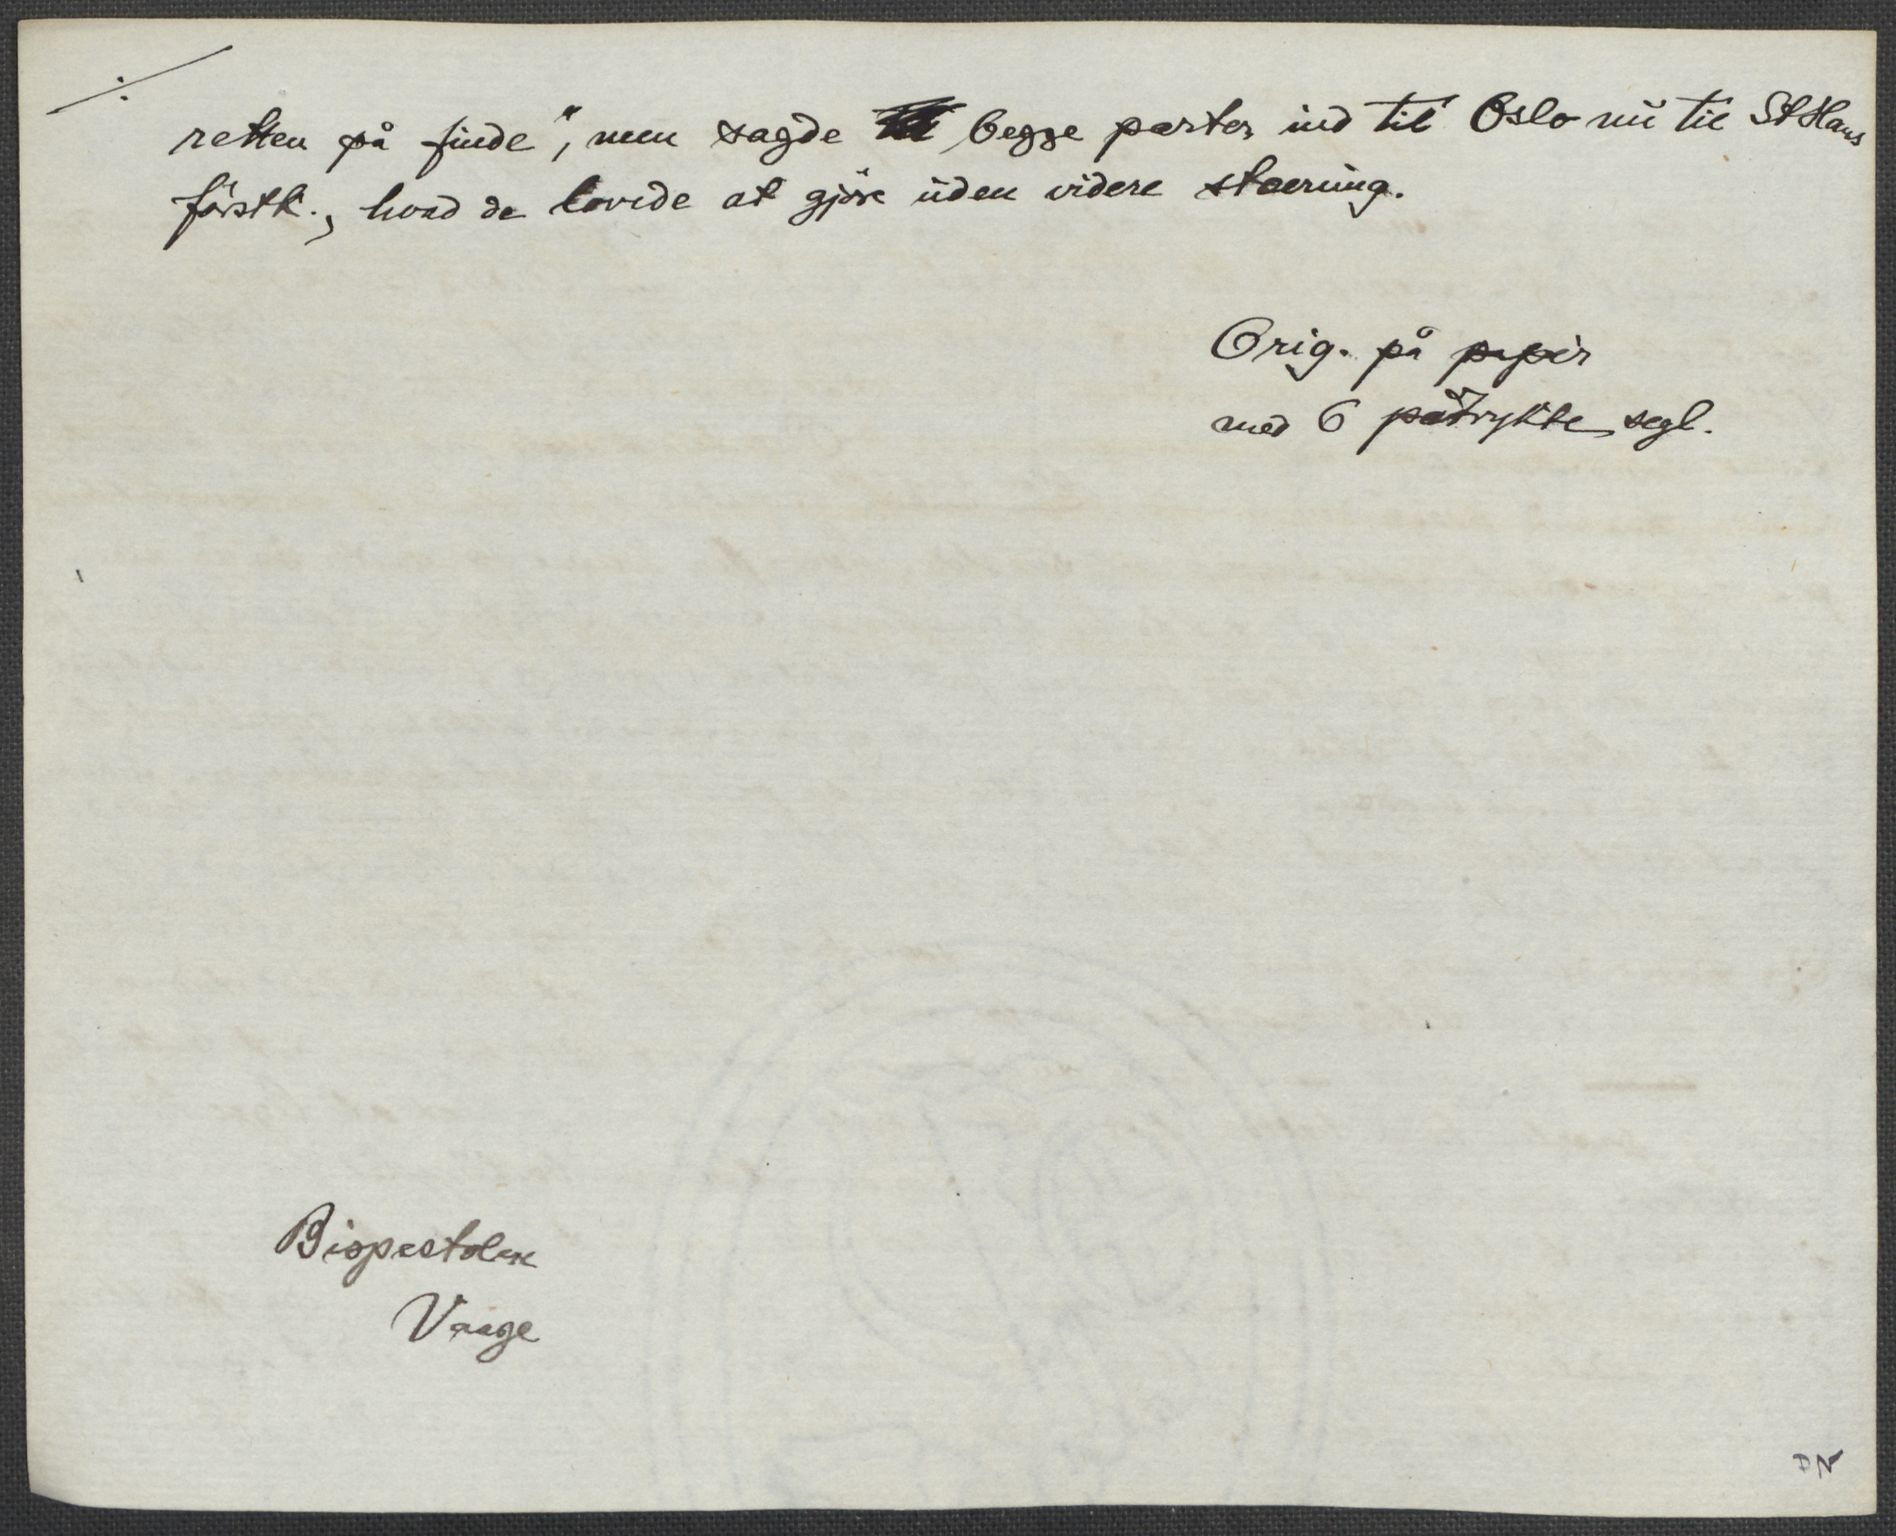 ./.
retten på finde", men sagde begge parter ind til Oslo nu til St Hans
förstk., hvad de lovede at gjöre uden videre stævning.
Orig. på papir
med 6 påtrykte segl.
Bispestolen
Vaage
DN